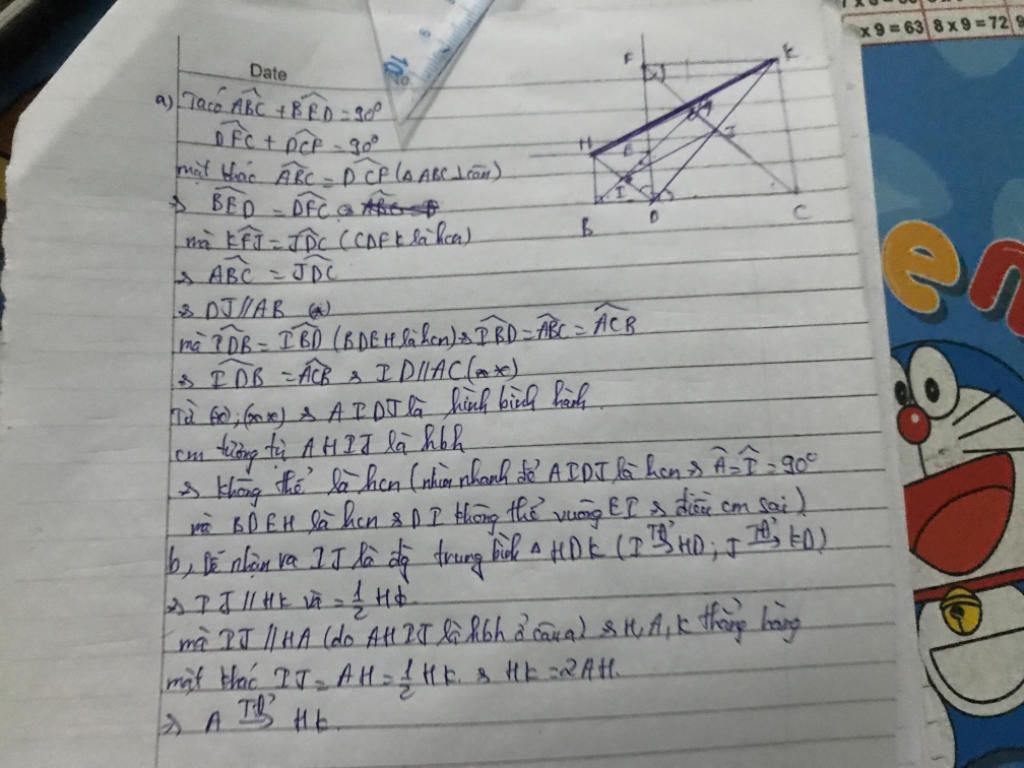 x 9 = 63 8 x 9 = 72 9
en
Date
10
F K
H E A J
I
B D C
a) Ta có ABC + BED = 90°
DFC + DCF = 90°
mặt khác ABC = DCF (△ABC ⊥ cân)
⇒ BED = DFC
mà KFJ = JDC (CDFK là hcn)
⇒ ABC = JDC
⇒ DJ // AB (*)
mà IDB = IBD (BDEH là hcn) ⇒ IBD = ABC = ACB
⇒ IDB = ACB ⇒ ID // AC (**)
Từ (*); (**) ⇒ AIDJ là hình bình hành
cm tương tự AHIJ là hbh
⇒ không thể là hcn (nhìn nhanh để AIDJ là hcn ⇒ A = I = 90°
mà BDEH là hcn ⇒ DI không thể vuông EI ⇒ điều cm sai)
b, Dễ nhận ra IJ là đg trung bình △HDK (I TĐ HD; J TĐ KD)
⇒ IJ // HK và = 1/2 HK
mà IJ // HA (do AHIJ là hbh ở câu a) ⇒ H, A, K thẳng hàng
mặt khác IJ = AH = 1/2 HK ⇒ HK = 2AH.
⇒ A TĐ HK.